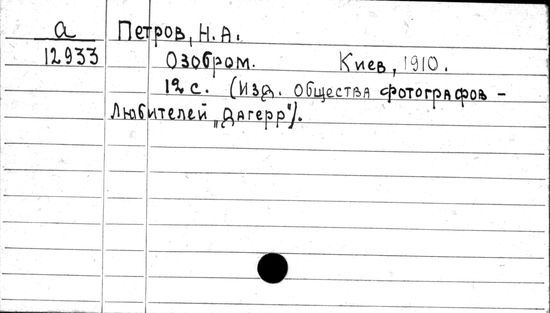 а Петров, Н.А.
12933 Озобром. Киев, 1910.
12 с. (Изд. общества фотографов-
любителей „Дагерр").